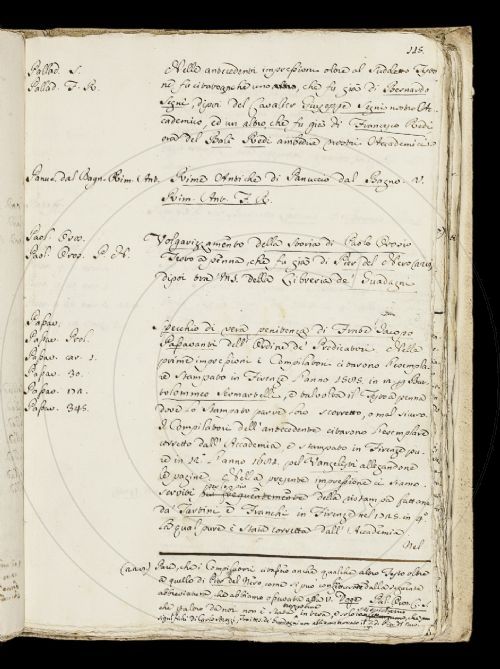 115.
Pallad. S.
Pallad. F. R.
Nelle antecedenti impressioni oltre al Suddetto Testo
ne fu citato anche uno altro, che fu già di Bernardo
Segni, dipoi del Cavalier Giuseppe Segni nostro Ac-
cademico, ed un altro che fu già di Francesco Redi
ora del Balì Redi ambedue nostri Accademici.
Panuc. dal Bagn. Rim. Ant.
Rime Antiche di Panuccio dal Bagno. V.
Rim. Ant. F. R.
Paol. Oros.
Paol. Oros. P. N.
Volgarizzamento della Storia di Paolo Orosio
Testo a penna, che fu già di Pier del Nero,
dipoi era MS. della Libreria de' Guadagni
Passav.
Passav. Prol.
Passav. car. 1.
Passav. 30.
Passav. 172.
Passav. 345.
Specchio di vera penitenza di Frate Jacopo
Passavanti dell' Ordine de' Predicatori. Nella
prima impressione i Compilatori citarono l'esempla-
re Stampato in Firenze l'anno 1585. in 12. pp Bar-
tolommeo Sermartelli, e talvolta il Testo a penna
dove lo Stampato parve loro scorretto, o mal sicuro.
I Compilatori dell' antecedente citarono l'esemplare
corretto dall' Accademia, e stampato in Firenze pu-
re in 12. l'anno 1681. pel Vangelisti allegandone
le pagine. Nella presente impressione ci siamo
serviti più frequentemente della ristampa fattane
da' Tartini e Franchi in Firenze nel 1725. in 4°
la qual pure è stata corretta dall' Accademia
Nel
Pare, che i Compilatori citassero anche qualche altro Testo oltre
a quello di Pier del Nero come si può dalla seguente
abbreviatura che abbiamo
che però da noi non è stato